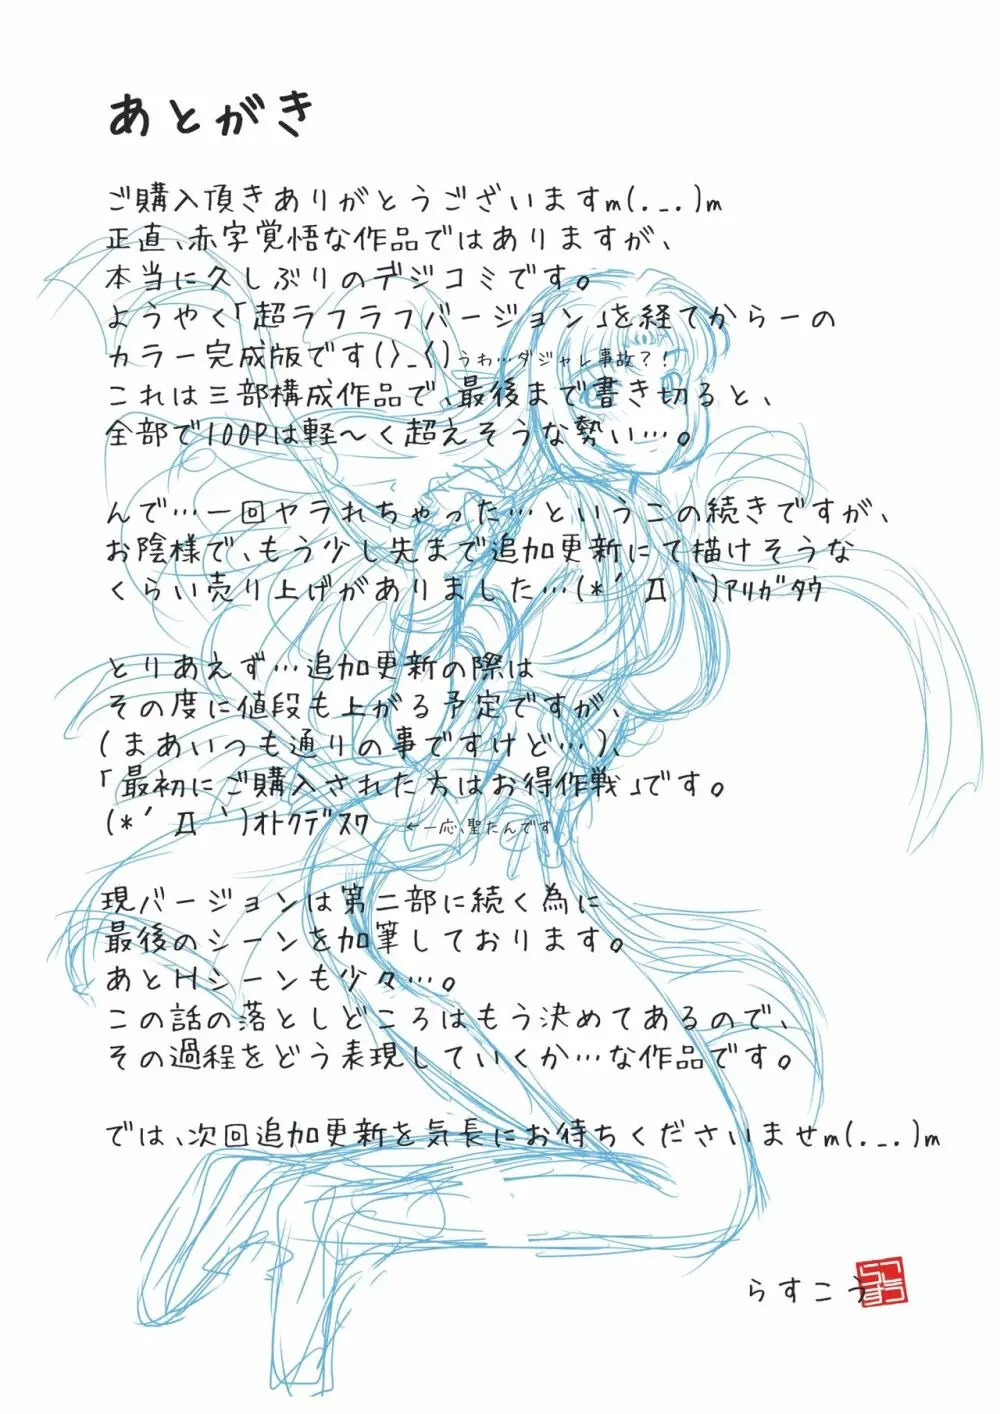 あとがき
ご購入頂きありがとうございますm(._.)m
正直、赤字覚悟な作品ではありますが、
本当に久しぶりのデジコミです。
ようやく「超ラフラフバージョン」を経てからーの
カラー完成版です(〉_〈)うわ…ダジャレ事故？！
これは三部構成作品で、最後まで書き切ると、
全部で100Pは軽〜く超えそうな勢い…。
んで…一回ヤラれちゃった…というこの続きですが、
お陰様で、もう少し先まで追加更新にて描けそうな
くらい売り上げがありました…(*´Д｀)ｱﾘｶﾞﾀｳ
とりあえず…追加更新の際は
その度に値段も上がる予定ですが、
(まあいつも通りの事ですけど…)、
「最初にご購入された方はお得作戦」です。
(*´Д｀)ｵﾄｸﾃﾞｽﾜ ←一応、聖たんです
現バージョンは第二部に続く為に
最後のシーンを加筆しております。
あとHシーンも少々…。
この話の落としどころはもう決めてあるので、
その過程をどう表現していくか…な作品です。
では、次回追加更新を気長にお待ちくださいませm(._.)m
らすこう